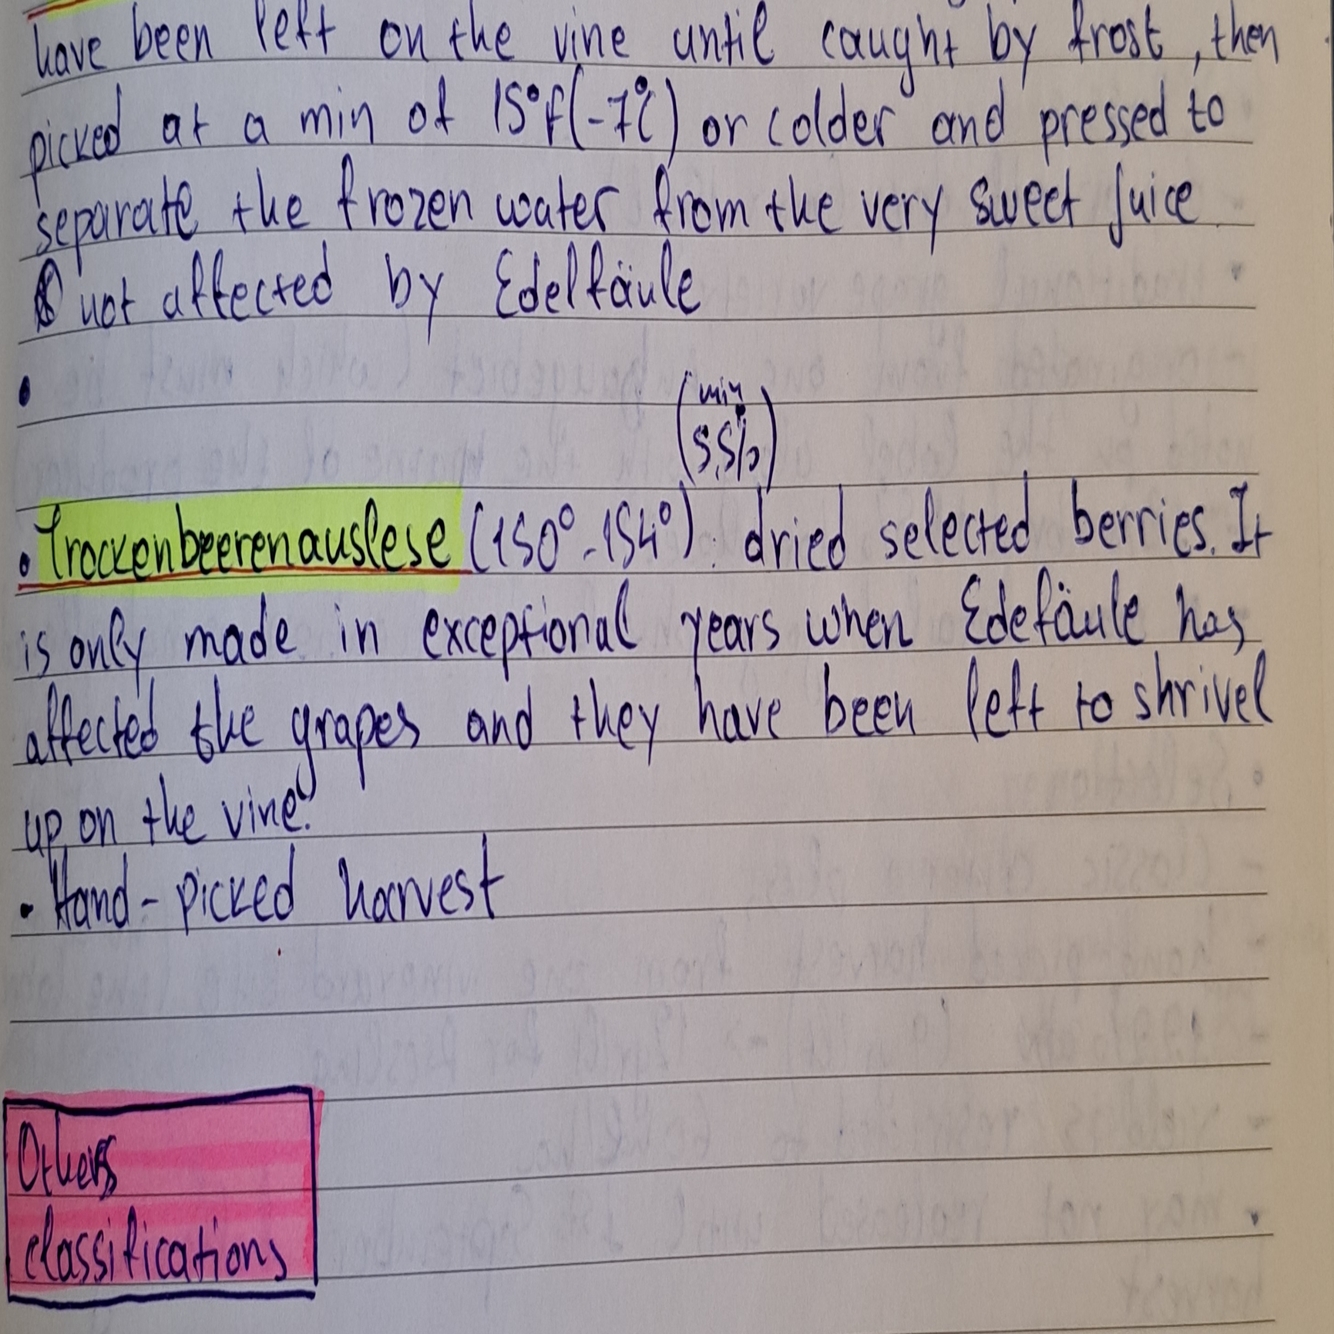 have been left on the vine until caught by frost, then
picked at a min of 15°F(-7°C) or colder and pressed to
separate the frozen water from the very sweet juice
not affected by Edelfäule
(min
5,5%)
• Trockenbeerenauslese (150°-154°). dried selected berries. It
is only made in exceptional years when Edefäule has
affected the grapes and they have been left to shrivel
up on the vine.
• Hand-picked harvest
Others
classifications